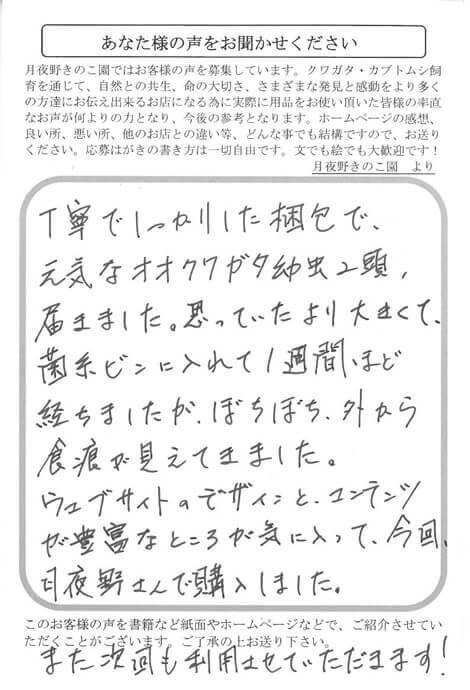 あなた様の声をお聞かせください
月夜野きのこ園ではお客様の声を募集しています。クワガタ・カブトムシ飼
育を通じて、自然との共生、命の大切さ、さまざまな発見と感動をより多く
の方達にお伝え出来るお店になる為に実際に用品をお使い頂いた皆様の率直
なお声が何よりの力となり、今後の参考となります。ホームページの感想、
良い所、悪い所、他のお店との違い等、どんな事でも結構ですので、お送り
ください。応募はがきの書き方は一切自由です。文でも絵でも大歓迎です！
月夜野きのこ園　より
丁寧でしっかりした梱包で、
元気なオオクワガタ幼虫2頭、
届きました。思っていたより大きくて、
菌糸ビンに入れて1週間ほど
経ちましたが、ぼちぼち、外から
食痕が見えてきました。
ウェブサイトのデザインと、コンテンツ
が豊富なところが気に入って、今回、
月夜野さんで購入しました。
このお客様の声を書籍など紙面やホームページなどで、ご紹介させてい
ただくことがございます。ご了承の上お送り下さい。
また次回も利用させていただきます！